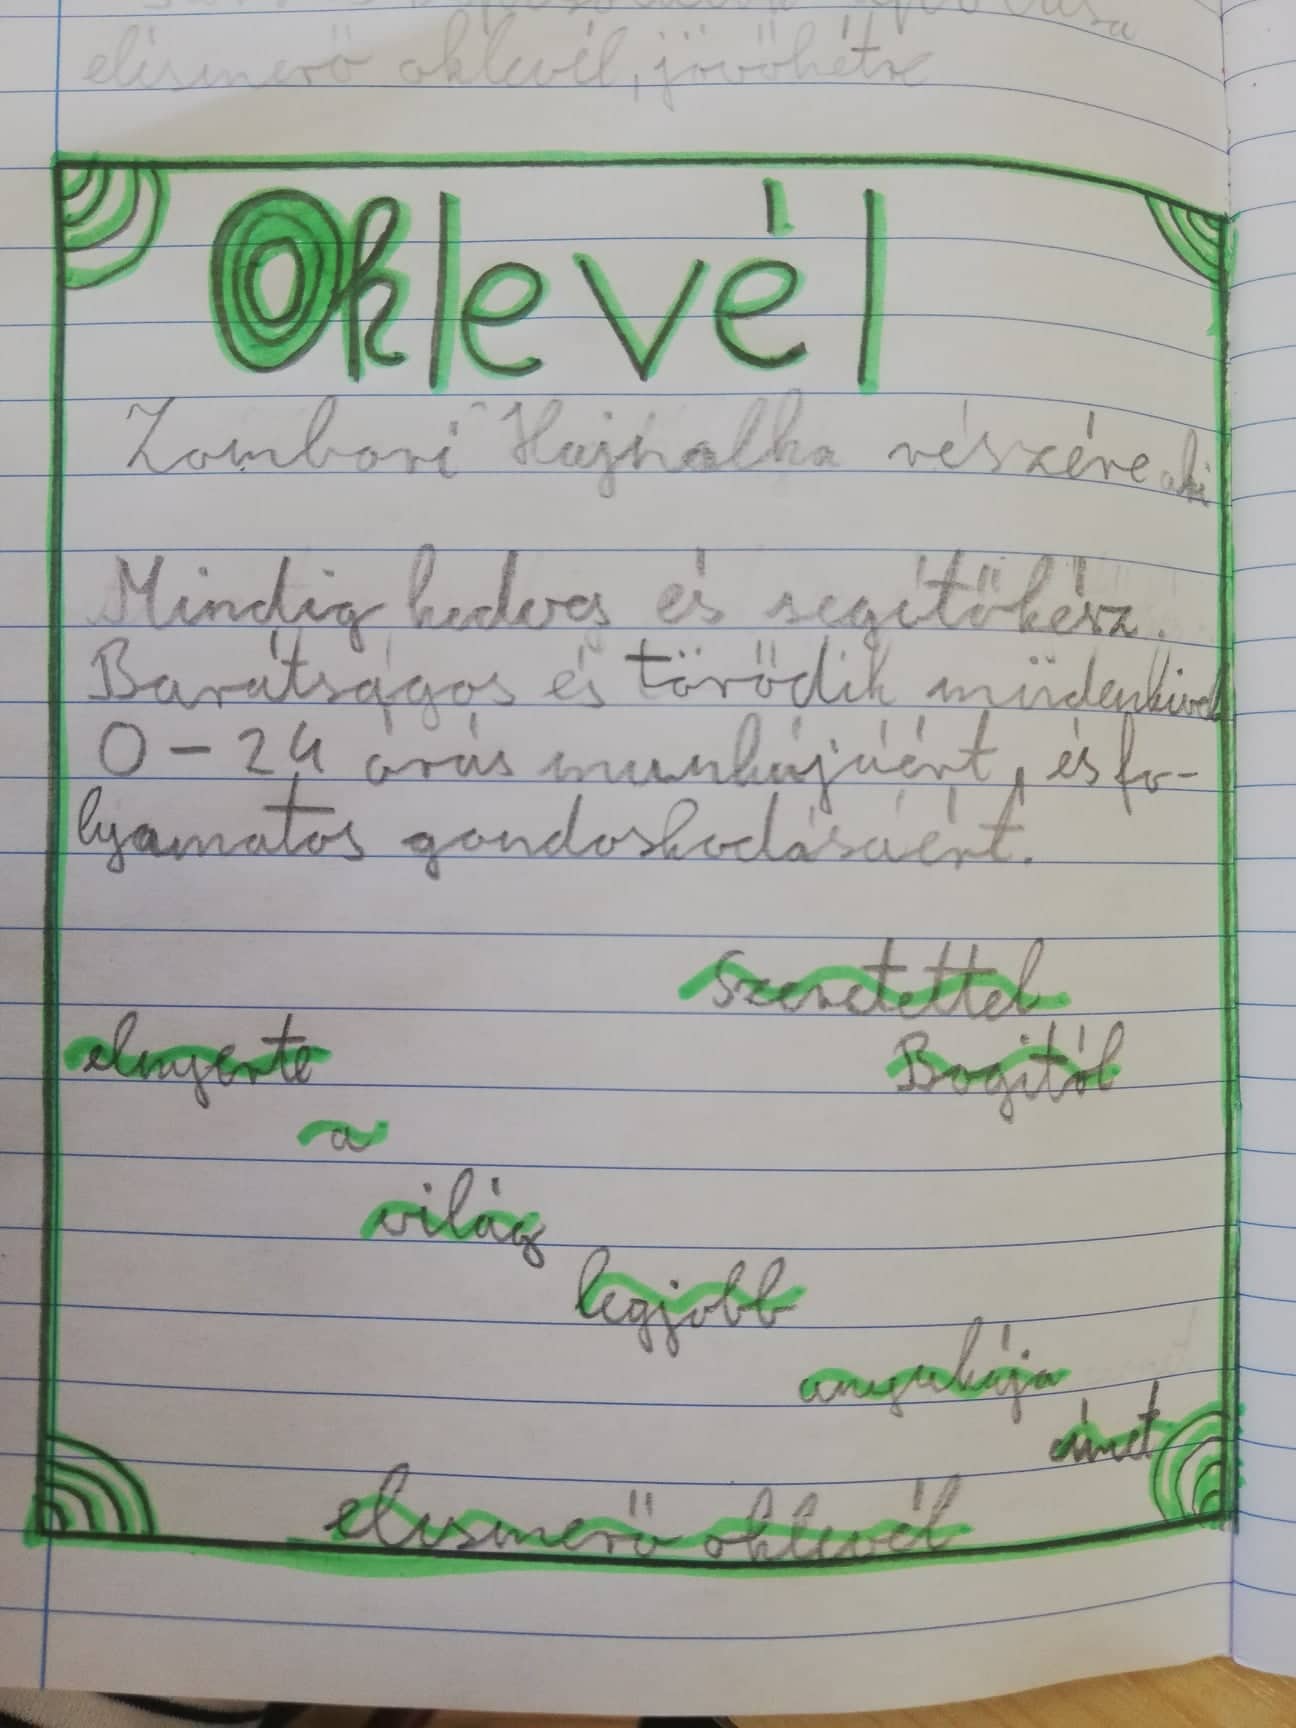 elismerő oklevél, jövőhétre
Oklevél
Zombori Hajnalka részére aki
Mindig kedves és segítőkész.
Barátságos és törődik mindenkivel
0-24 órás munkájáért, és fo-
lyamatos gondoskodásáért.
szeretettel
elnyerte Bogitól
a
világ
legjobb
anyukája
címet
elismerő oklevél